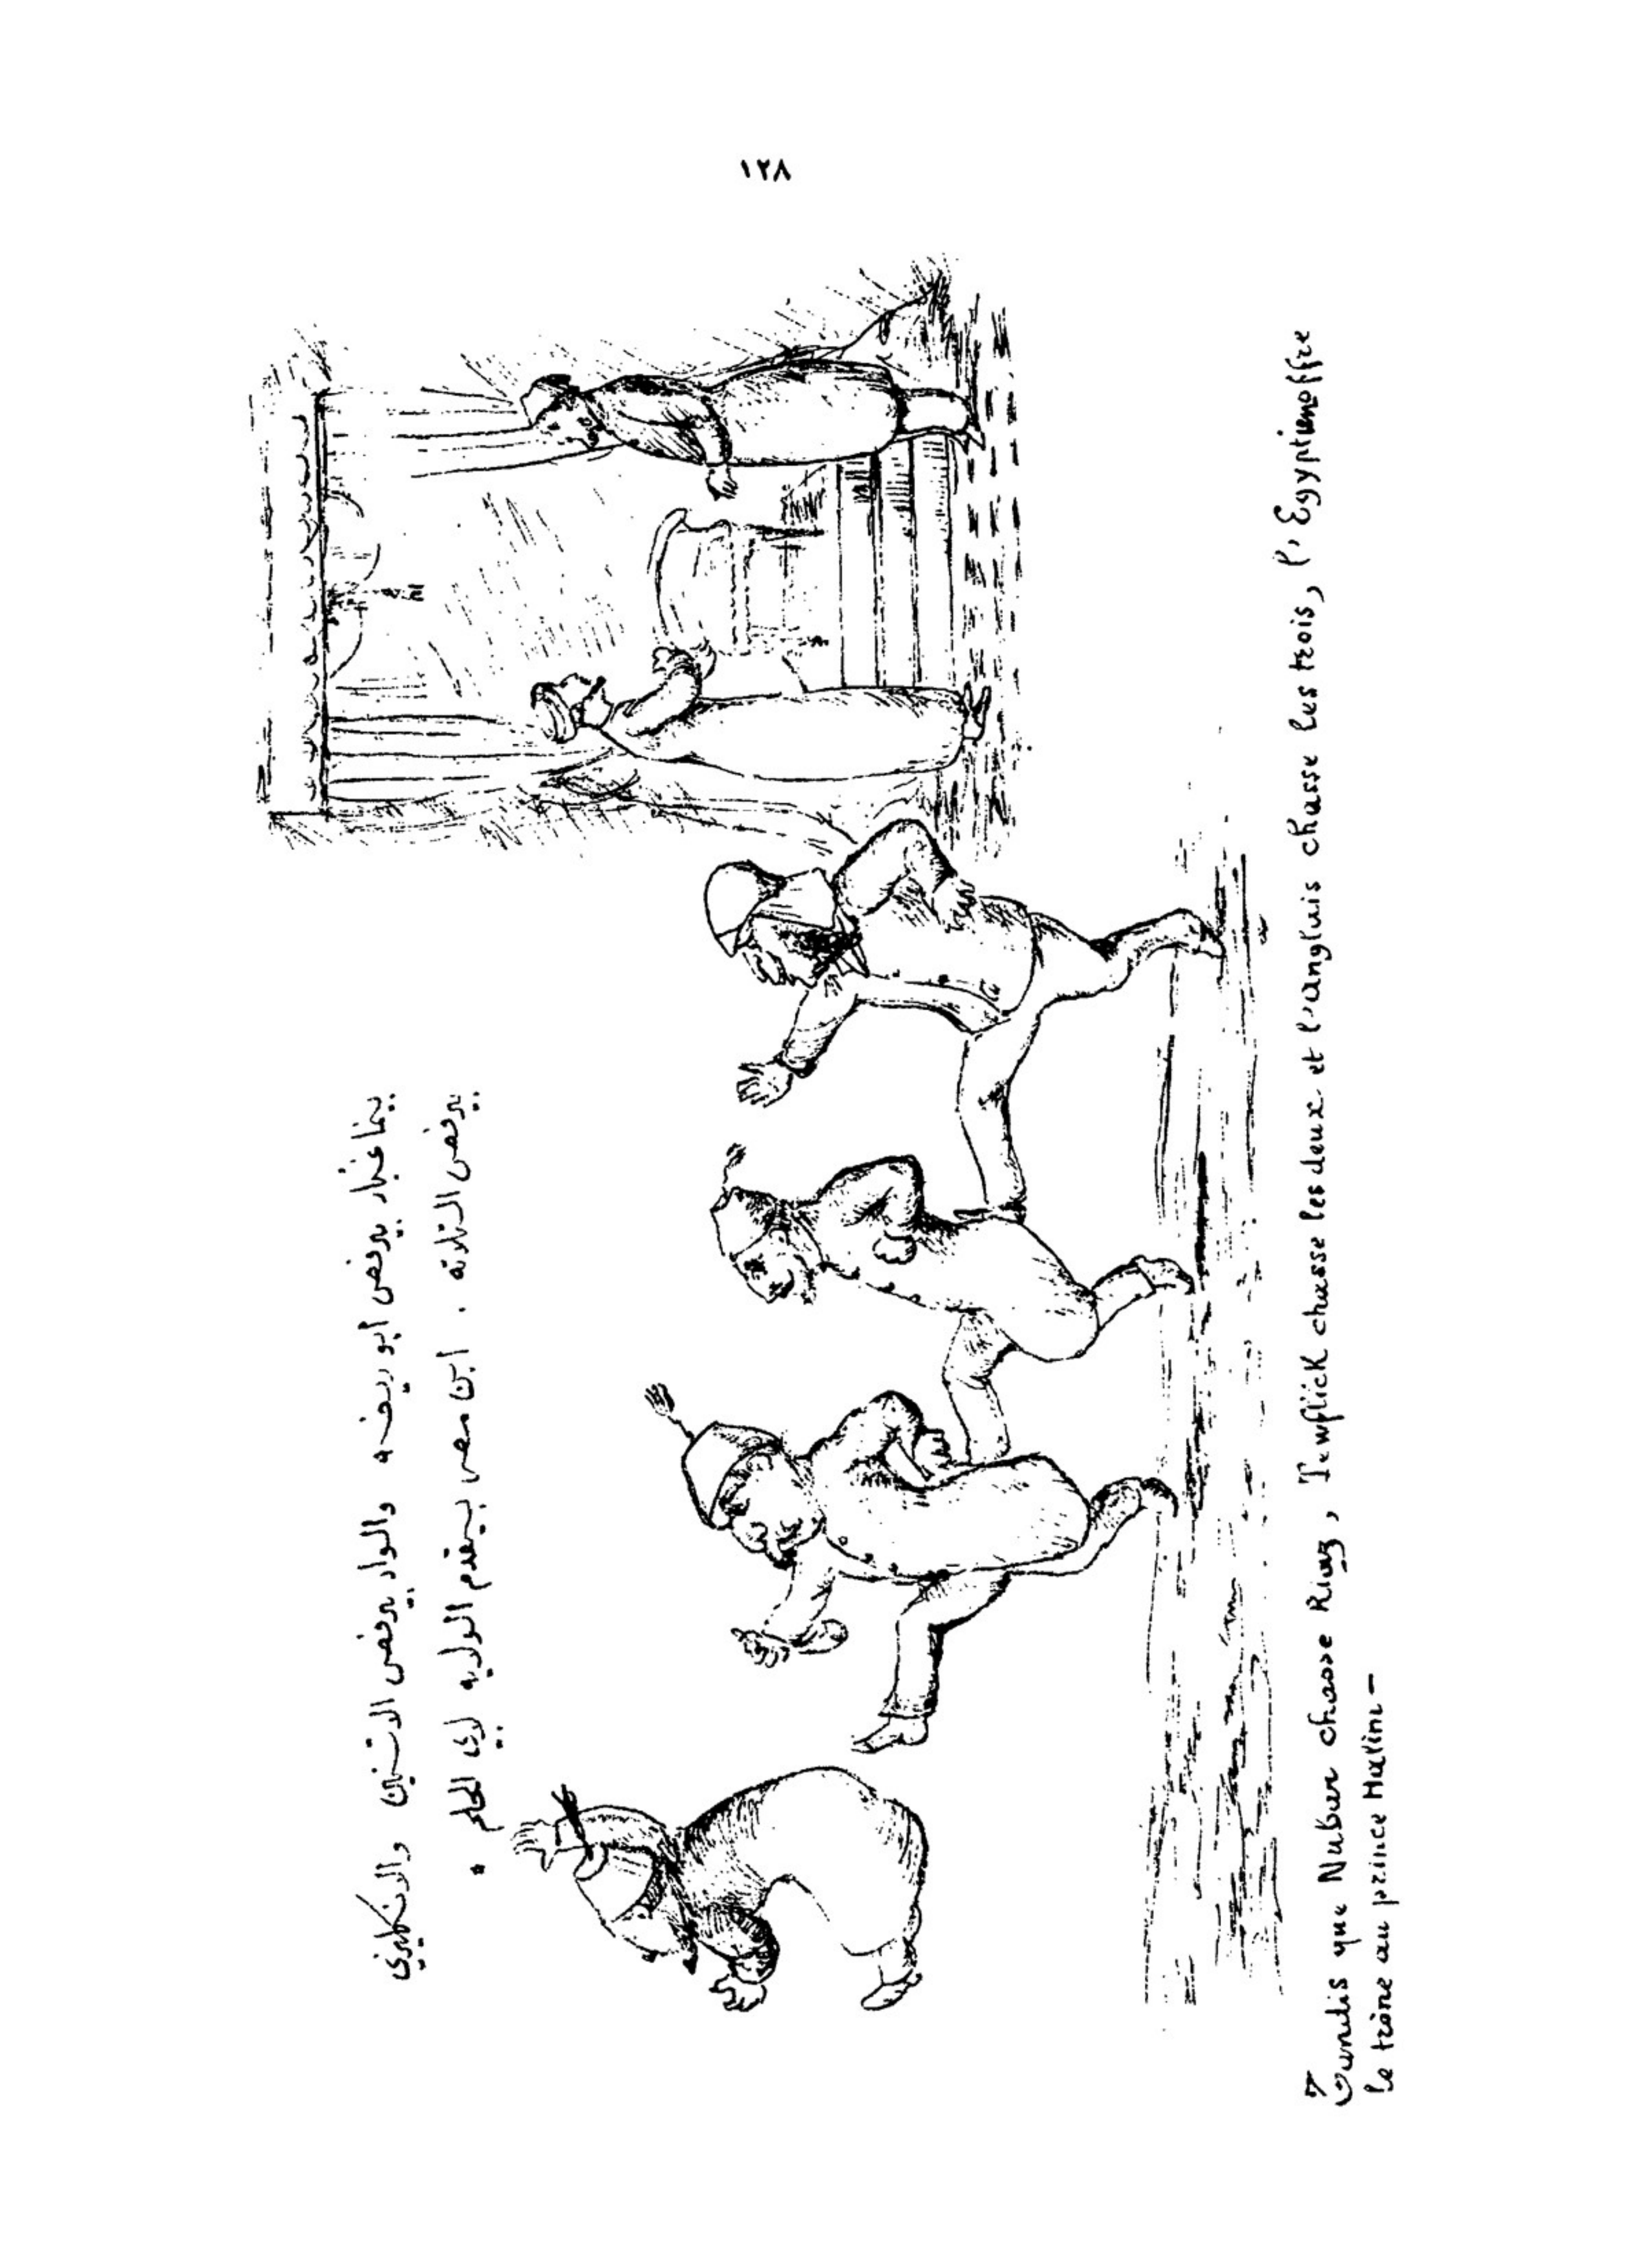 ١٢٨
بينما غبار بيرفص أبو ريضه والواد بيرفص الاتنين والانكليزي
بيرفص التلاته ، ابن مصر بيقدم الولايه لابي الحلم *
Tandis que Nubar chasse Riaz, Tewfick chasse les deux et l'anglais chasse les trois, l'Egyptien offre
le trône au prince Halim –